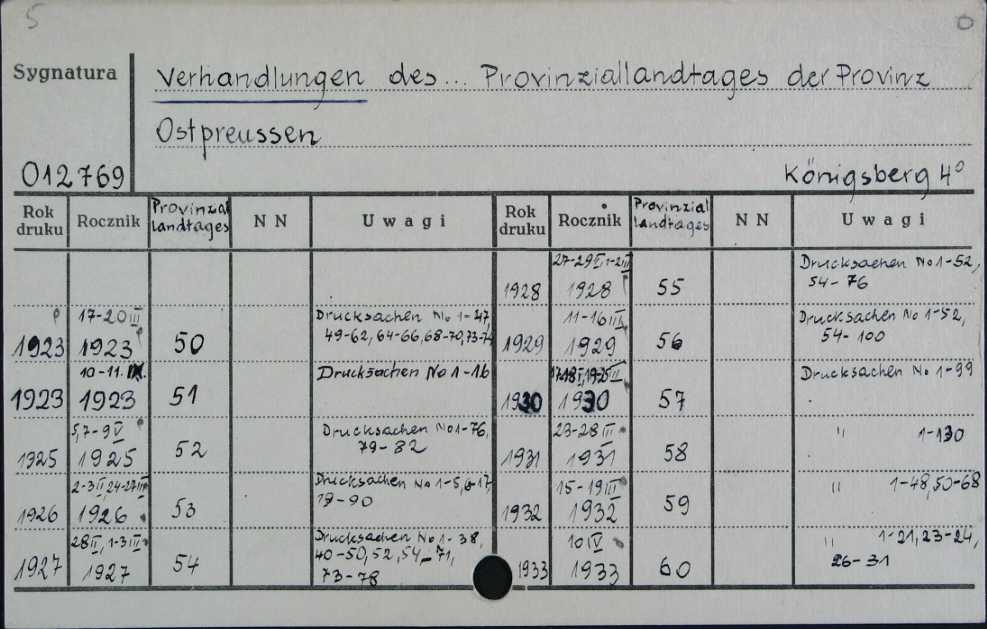 5 0
Sygnatura Verhandlungen des... Provinziallandtages der Provinz
Ostpreussen
012769 Königsberg 4°
Rok druku Rocznik Provinzial landtages NN Uwagi Rok druku Rocznik Provinzial landtages NN Uwagi
1928 27-29 I, 1-2 II 1928 55 Drucksachen No 1-52, 54-76
1923 17-20 III 1923 50 Drucksachen No 1-47, 49-62, 64-66, 68-70, 73-74 1929 11-16 III 1929 56 Drucksachen No 1-52, 54-100
1923 10-11. IX. 1923 51 Drucksachen No 1-16 1930 1930 57 Drucksachen No 1-99
1925 5,7-9 V 1925 52 Drucksachen No 1-76, 79-82 1931 23-28 III 1931 58 " 1-130
1926 2-3 II, 24-27 III 1926 53 Drucksachen No 1-5, 6-17, 19-90 1932 15-19 III 1932 59 " 1-48, 50-68
1927 28 II, 1-3 III 1927 54 Drucksachen No 1-38, 40-50, 52, 54-71, 73-78 1933 10 IV 1933 60 " 1-21, 23-24, 26-31